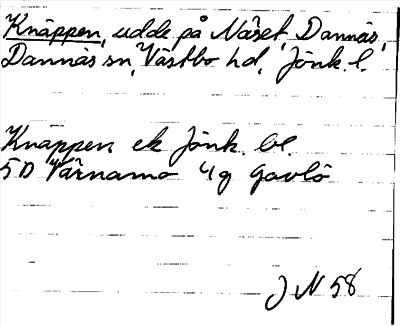 Knäppen, udde på Näset, Dannäs,
Dannäs sn, Västbo hd, Jönk. l.
Knäppen ek Jönk. bl.
5D Värnamo 4g Gavlö
J N 58